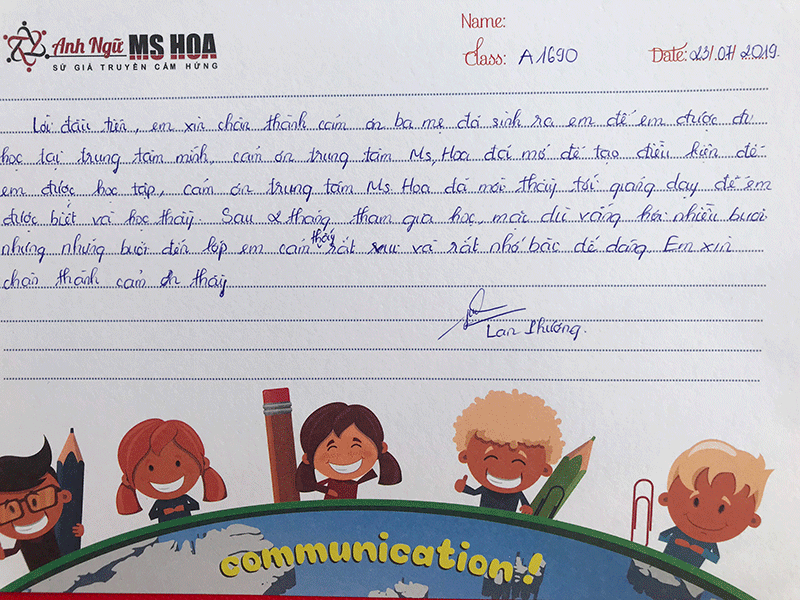 Anh Ngữ MS HOA
SỨ GIẢ TRUYỀN CẢM HỨNG
Name:
Class: A1690
Date: 23/07/2019
Lời đầu tiên, em xin chân thành cám ơn ba mẹ đã sinh ra em để em được đi
học tại trung tâm mình, cám ơn trung tâm Ms. Hoa đã mở để tạo điều kiện để
em được học tập, cám ơn trung tâm Ms. Hoa đã mời thầy tới giảng dạy để em
được biết và học thầy. Sau 2 tháng tham gia học, mặc dù vắng hơi nhiều buổi
nhưng những buổi đến lớp em cảm thấy rất vui và rất nhớ bài dễ dàng. Em xin
chân thành cảm ơn thầy
Lan Phương.
communication!